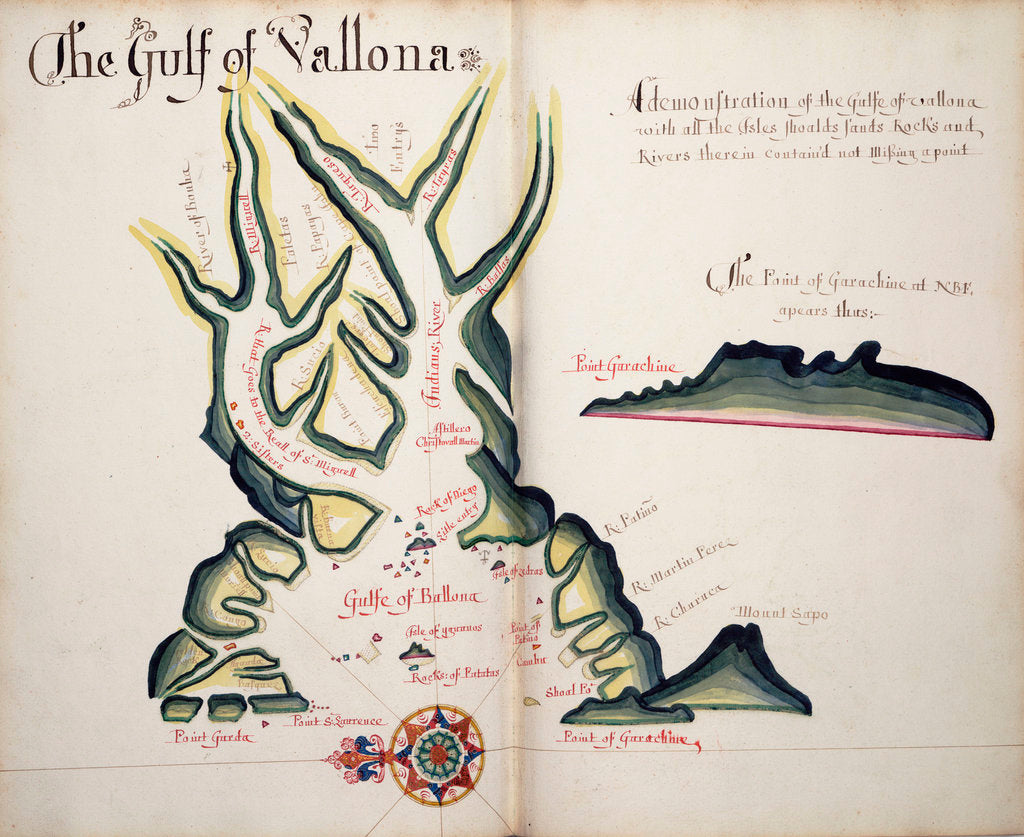 The Gulf of Vallona
A demonstration of the Gulfe of vallona
with all the Isles shoalds sands Rocks and
Rivers therein containd not Missing a point
The Point of Garachine at NBE.
apears thus:-
Point Garachine
River of Bonha
R: Marina
Paletas
R: Papayas
Shoal point of
Entrys
R: Ballas
Indians: River
R: Sucio
R: that Goes to the Reall of St. Miguell
2: Sisters
Astillero
Christovall Martin
Rock of Diego
Litle entry
Isle of
Gulfe of Ballona
Isle of yguanos
Rocks: of Patatas
Point of
Patino
Shoal Po
R: Patino
R: Martin Perez
R: Charuca
Mount Sapo
Point St. Laurence
Point Garda
Point of Garachine